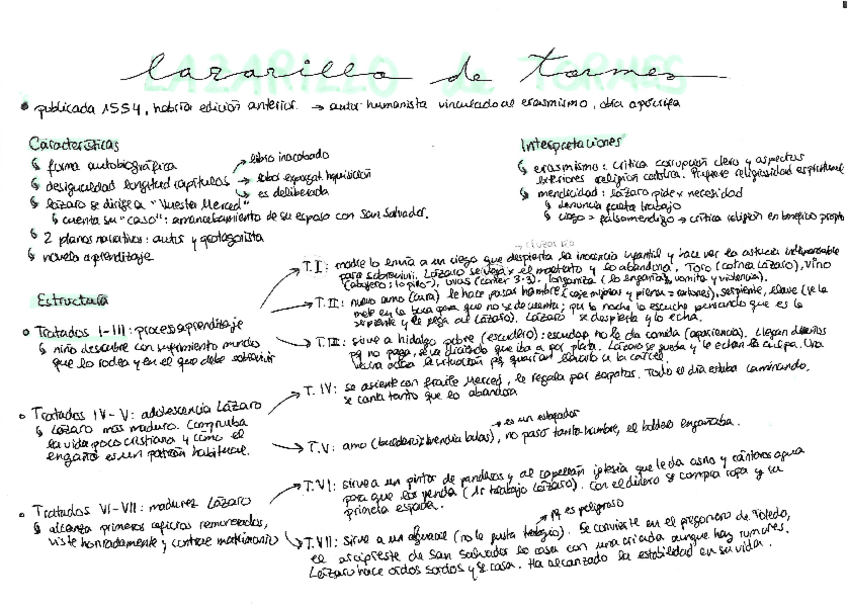 Lazarillo de Tormes
• publicada 1554, habría edición anterior. → autor humanista vinculado al erasmismo, obra apócrifa
Características
↳ forma autobiográfica
↳ desigualdad longitud capítulos → libro inacabado
→ labor expurgat Inquisición
→ es deliberada
↳ Lázaro se dirige a "Vuestra Merced"
↳ cuenta su "caso": amancebamiento de su esposa con San Salvador.
↳ 2 planos narrativos: autor y protagonista
↳ novela aprendizaje
Interpretaciones
↳ erasmismo: crítica corrupción clero y aspectos
exteriores religión católica. Prefiere religiosidad espiritual
↳ mendicidad: Lázaro pide x necesidad
↳ denuncia falta trabajo
↳ ciego = falso mendigo → crítica religión en beneficio propio
Estructura
o Tratados I-III: proceso aprendizaje
↳ niño descubre con sufrimiento mundo
que lo rodea y en el que debe sobrevivir
T. I: madre lo envía a un ciego que despierta la inocencia infantil y hace ver la astucia indispensable
para sobrevivir. Lázaro se venga x el maltrato y lo abandona. Toro (cornea Lázaro), vino
(agujero; lo pilló), uvas (comer 3-3), longaniza (lo engaña), vomita y violencia).
T. II: nuevo amo (cura) le hace pasar hambre (coge migajas y piensa = ratones), serpiente, llave (se la
mete en la boca para que no se dé cuenta; por la noche lo escucha pensando que es la
serpiente y le pega al Lázaro). Lázaro se despierta y lo echa.
T. III: sirve a hidalgo pobre (escudero): escudero no le da comida (apariencia). Llegan
pq no paga, se va diciendo que iba a por plata. Lázaro se queda y le echan la culpa. Una
vecina aclara la situación pq querían llevarlo a la cárcel.
o Tratados IV-V: adolescencia Lázaro
↳ Lázaro más maduro. Comprueba
la vida poco cristiana y cómo el
engaño es un patrón habitual.
T. IV: se asienta con fraile Merced, le regala par zapatos. Todo el día estaba caminando,
se canta tanto que lo abandona
→ es un estafador
T. V: amo (buldero: vendía bulas), no pasó tanta hambre, el buldero engañaba.
o Tratados VI-VII: madurez Lázaro
↳ alcanza primeros oficios remunerados,
viste honradamente y contrae matrimonio
T. VI: sirve a un pintor de panderos y al capellán iglesia que le da asno y cántaros agua
para que los venda (1r trabajo Lázaro). Con el dinero se compra ropa y su
primera espada.
→ pq es peligroso
T. VII: sirve a un alguacil (no le gusta trabajo). Se convierte en el pregonero de Toledo,
el arcipreste de San Salvador lo casa con una criada aunque hay rumores.
Lázaro hace oídos sordos y se casa. Ha alcanzado la estabilidad en su vida.